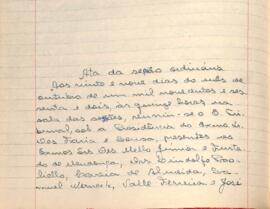 Ata da sessão ordinária
Aos vinte e nove dias do mês de
outubro de um mil novecentos e ses
senta e dois, às quinze horas na
sala das sessões, reuniu-se o E. Tri
bunal, sob a Presidência do Exmo Sr.
Des Faria e Sousa, presentes os
Exmos Srs Des Mello Junior e Furta
do de Mendonça, Drs Lindolfo Pao
liello, Correia de Almeida,
Werneck, Valle Ferreira e José